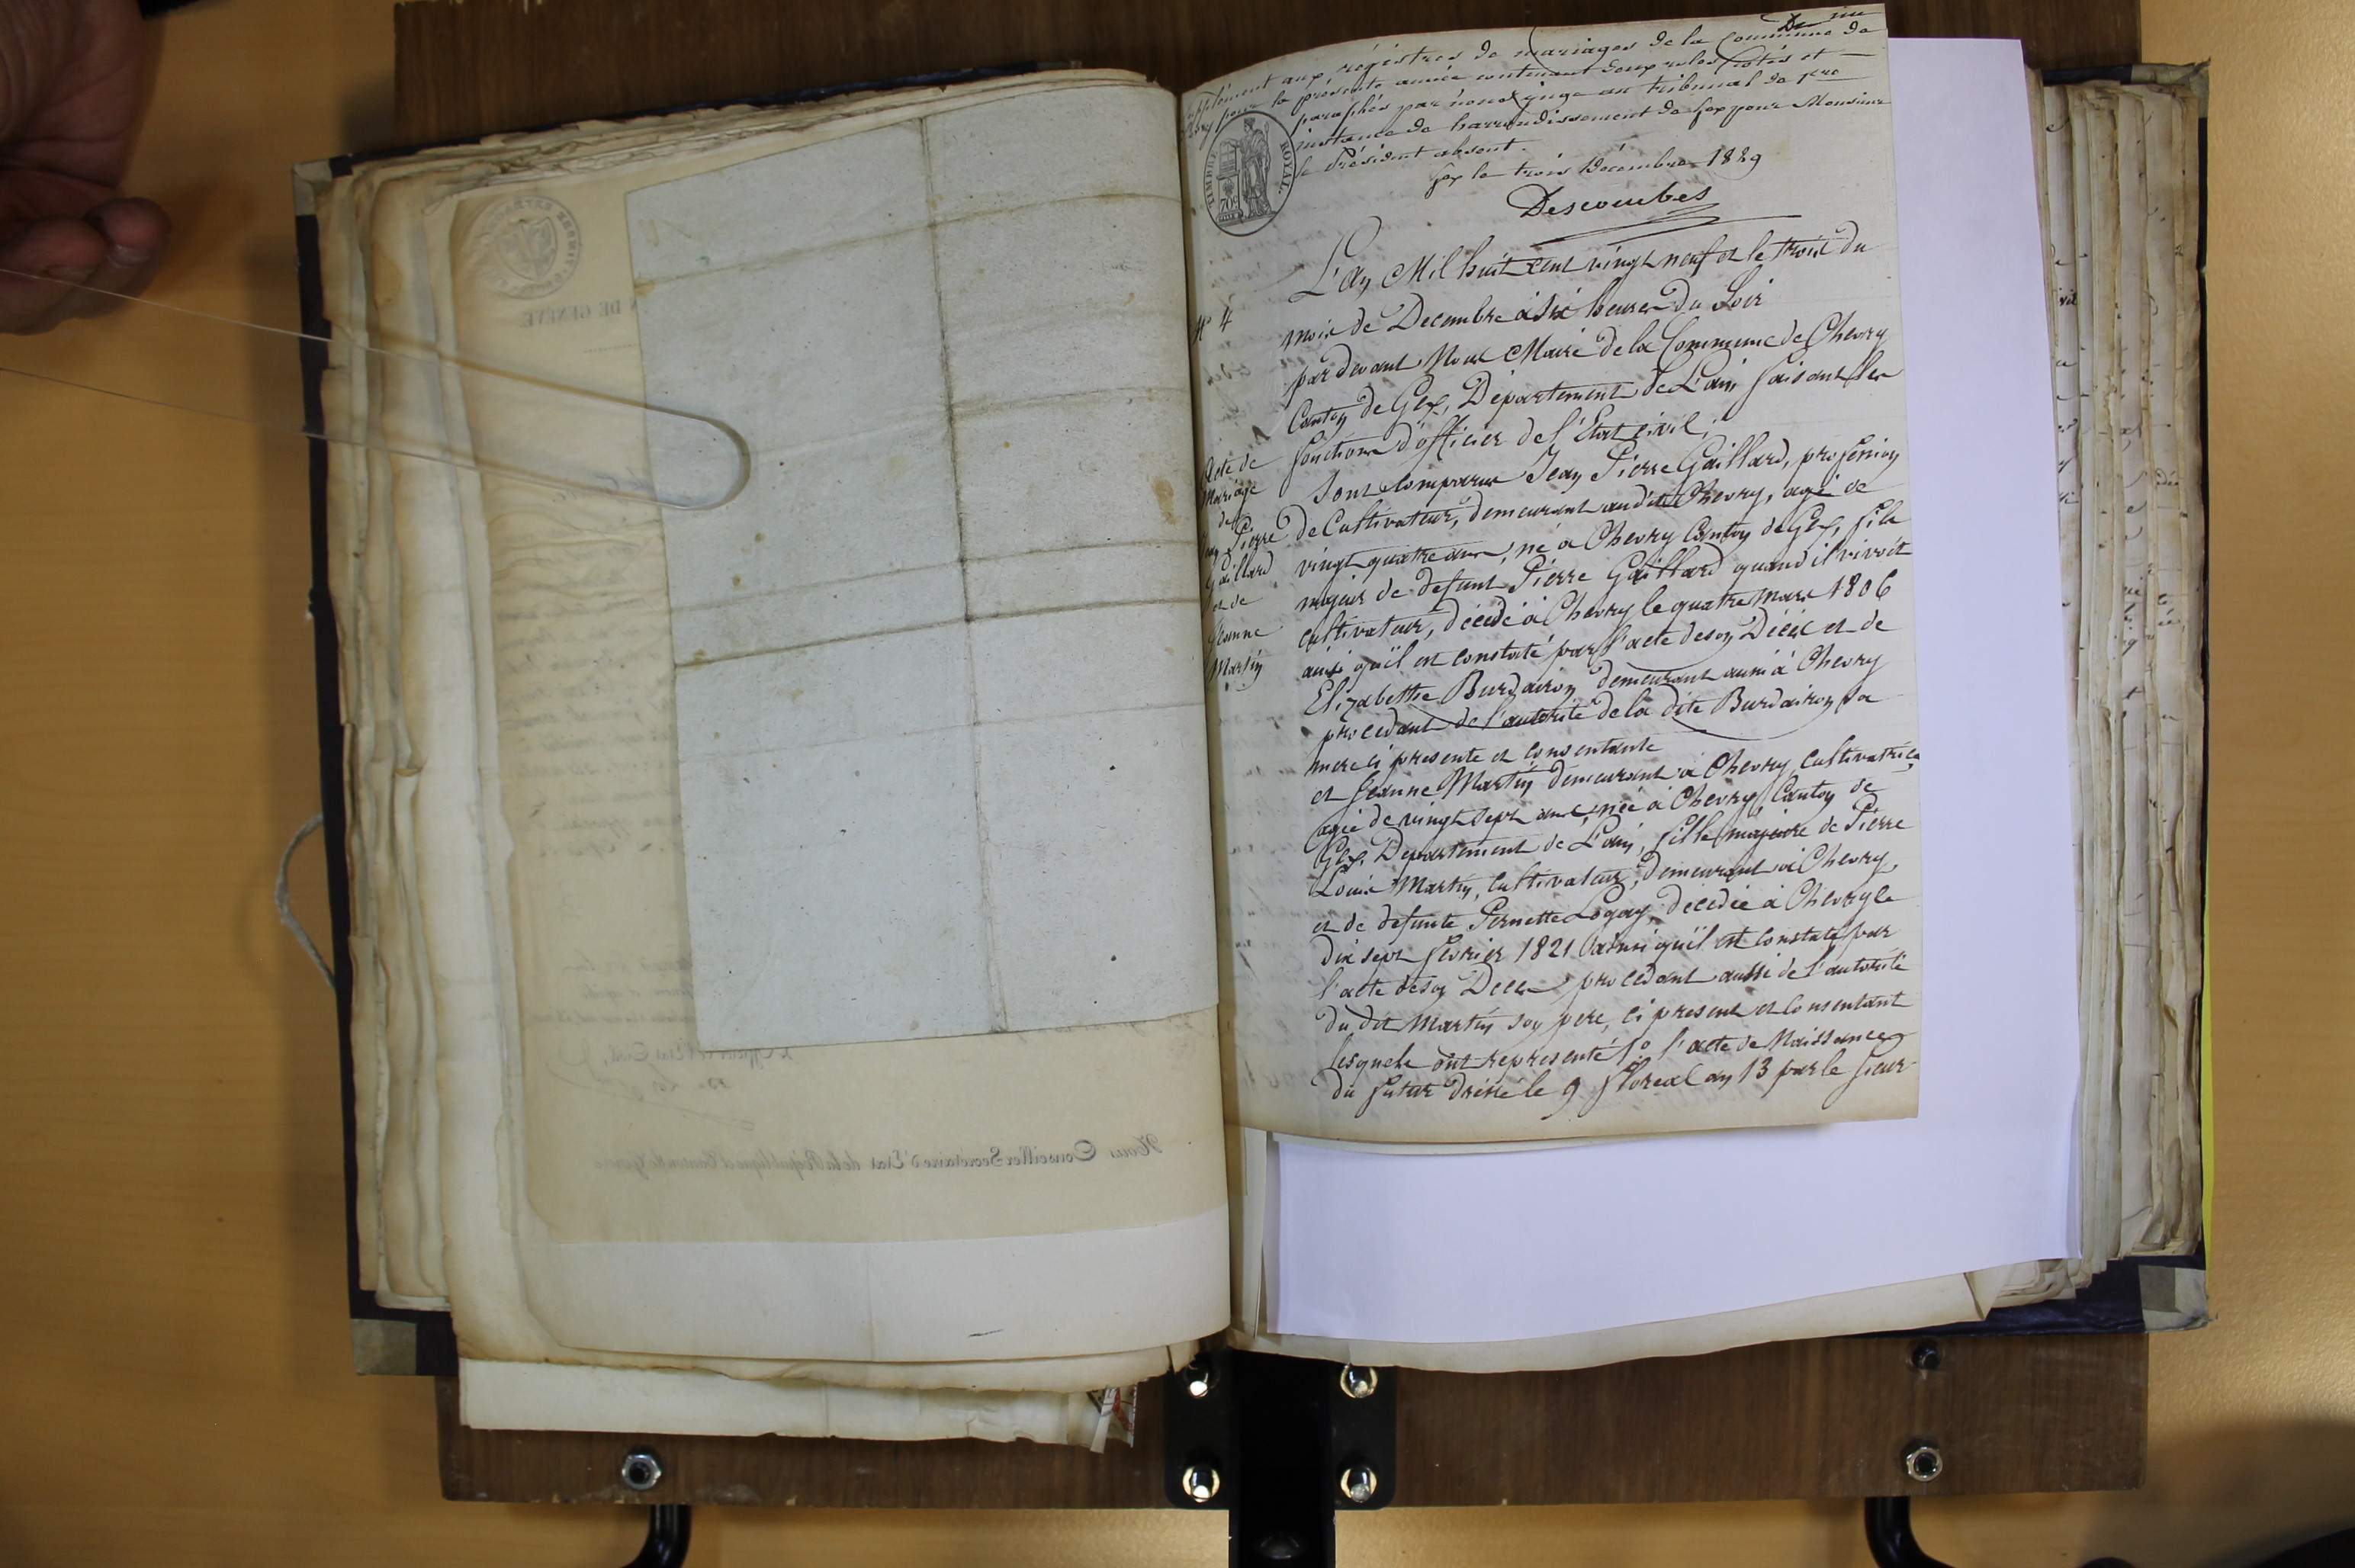 supplément aux régistres de mariages de la Commune de
pour la présente année contenant deux roles cotés et
paraphés par nous juge au tribunal de 1re
instance de l'arrondissement de Gex pour Monsieur
le Président absent.
Gex le trois Décembre 1829
Descombes
TIMBRE ROYAL
70c
N° 4
Acte de
Mariage
de
Pierre
Gaillard
et de
Jeanne
Martin
L'an Mil huit cent vingt neuf et le trois du
mois de Decembre à six heures du Soir
par devant Nous Maire de la Commune de Chevry
Canton de Gex, Département de L'ain faisant les
fonctions d'officier de l'Etat civil;
Sont comparus Jean Pierre Gaillard, profession
de Cultivateur, demeurant audit Chevry, agé de
vingt quatre ans, né à Chevry Canton de Gex, fils
majeur de defunt Pierre Gaillard quand il vivoit
cultivateur, décédé à Chevry le quatre Mars 1806
ainsi qu'il est constaté par l'acte de son Décès et de
Elizabethe Burdairon demeurant aussi à Chevry
procedant de l'autorité de la dite Burdairon sa
mere ci presente et consentante
et Jeanne Martin demeurant à Chevry, Cultivatrice,
agée de vingt sept ans, née à Chevry Canton de
Gex, Departement de L'ain, fille majeure de Pierre
Louis Martin, cultivateur, demeurant à Chevry,
et de defunte Pernette Logay, décédée à Chevry le
dix sept fevrier 1821 ainsi qu'il est constaté par
l'acte de son Deces procedant aussi de l'autorité
du dit Martin son pere, ci present et consentant
Lesquels ont representé 1° l'acte de Naissance
du futur dréssé le 9 floreal an 13 par le sieur
N DE GENÈVE
Nous Conseiller Secrétaire d'Etat de la République et Canton de Genève